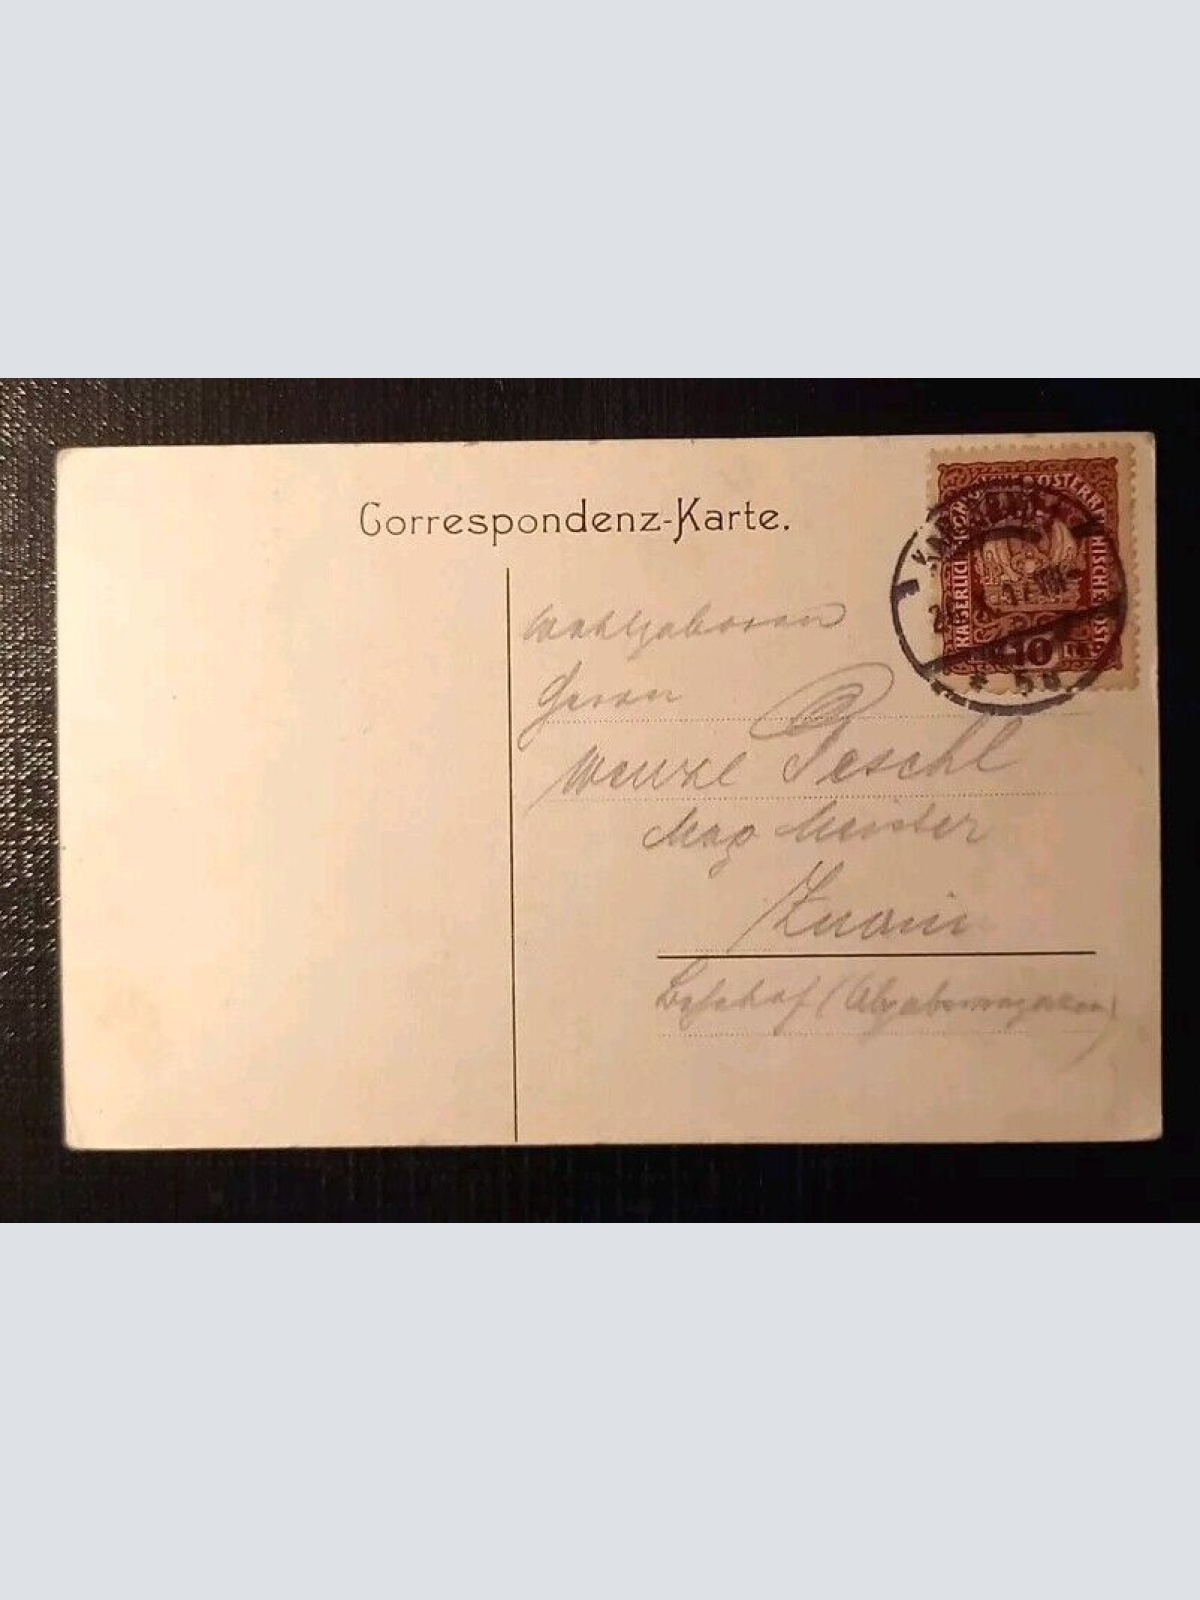 Correspondenz-Karte.
KAISERLICHE KÖNIGLICHE ÖSTERREICHISCHE POST
10
5a
Wohlgeboren
Herrn
Wenzl Peschl
Mag Meister
Znaim
Bahnhof (Abgabemagazin)